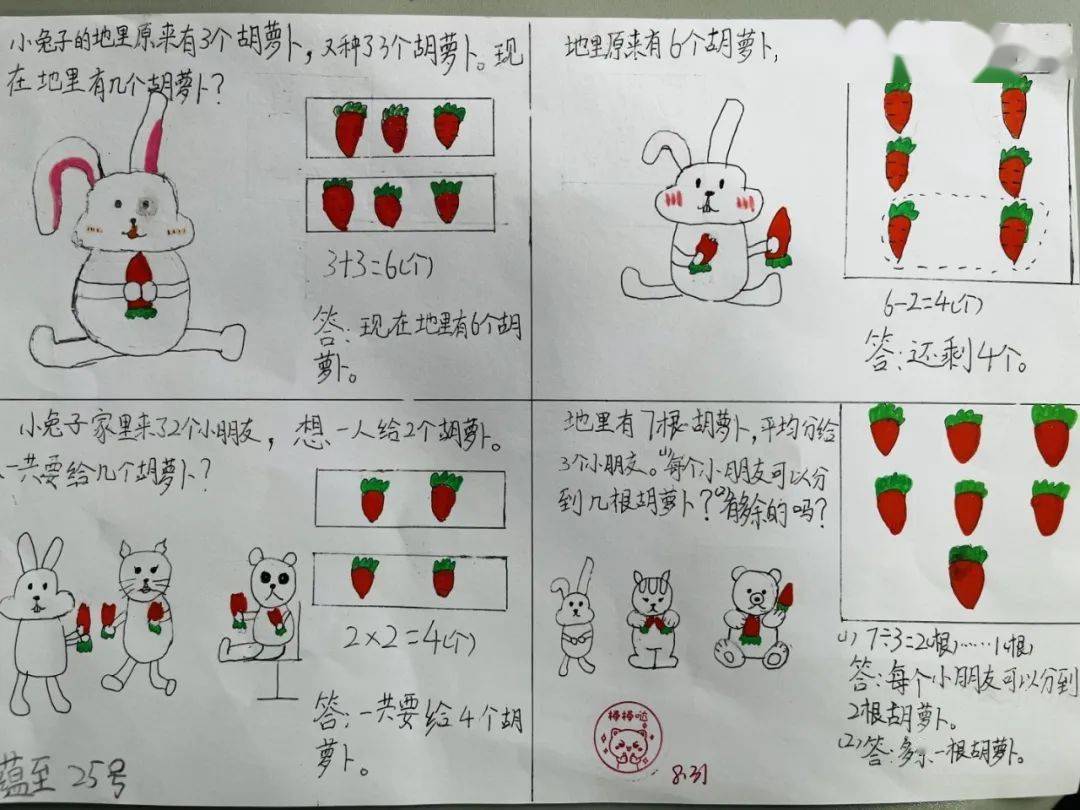 小兔子的地里原来有3个胡萝卜，又种了3个胡萝卜。现
在地里有几个胡萝卜？
3+3=6(个)
答：现在地里有6个胡
萝卜。
地里原来有6个胡萝卜，
6-2=4(个)
答：还剩4个。
小兔子家里来了2个小朋友，想一人给2个胡萝卜。
一共要给几个胡萝卜？
2×2=4(个)
答：一共要给4个胡
萝卜。
蕴至 25号
地里有7根胡萝卜，平均分给
3个小朋友。(1)每个小朋友可以分
到几根胡萝卜？(2)有多余的吗？
(1) 7÷3=2(根)……1(根)
答：每个小朋友可以分到
2根胡萝卜。
(2)答：多余一根胡萝卜。
棒棒哒
8.31